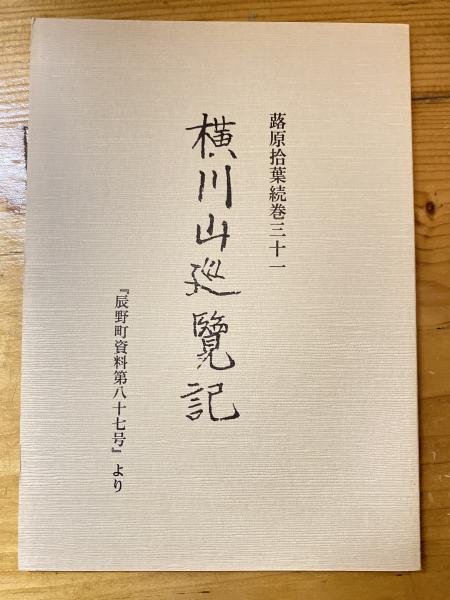 蕗原拾葉続巻三十一
横川山巡覽記
『辰野町資料第八十七号』より